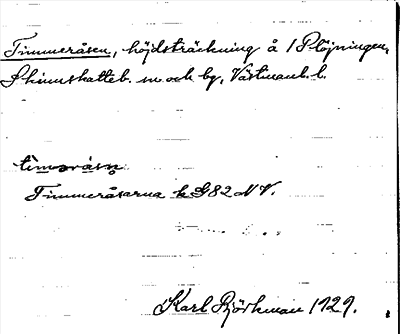 Timmeråsen, höjdsträckning å 1 Plöjningen,
Skinnskatteb. sn och bg, Västmanl. l.
tìməråsn̥
Timmeråsarna k G82 NV.
Karl Björkman 1929.